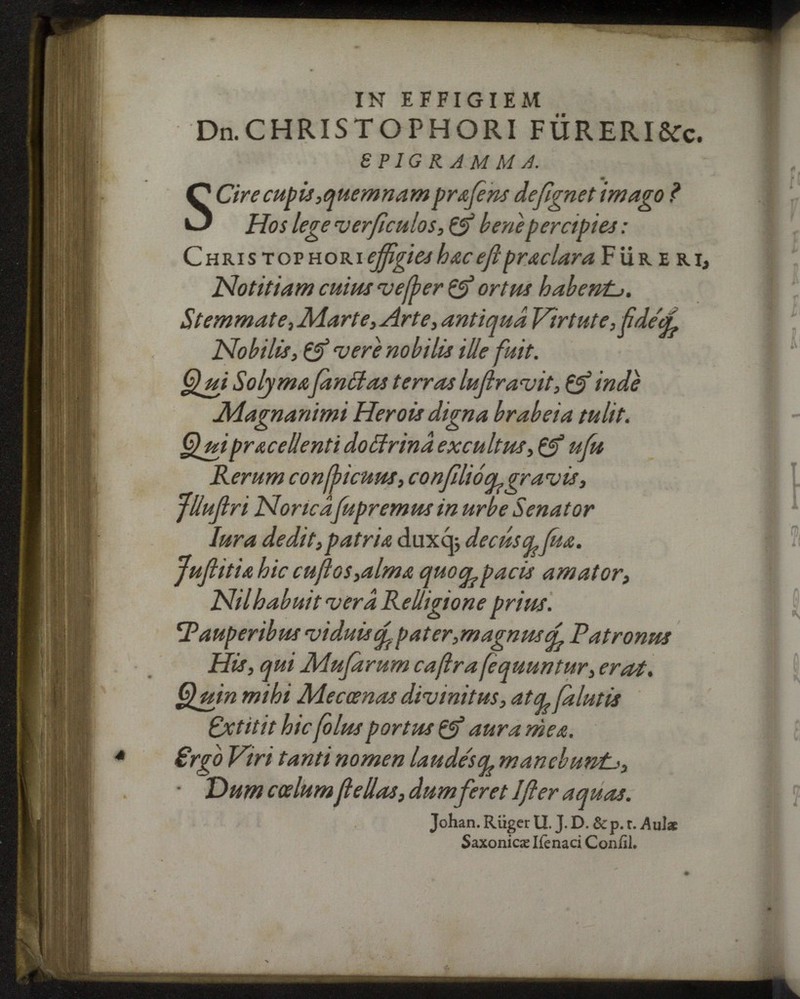 IN EFFIGIEM
Dn. CHRISTOPHORI FÜRERI &c.
EPIGRAMMA.
SCire cupis, quemnam præſens deſignet imago?
Hos lege verſiculos, & benè percipies:
CHRISTOPHORI effigies hæc eſt præclara FÜRERI,
Notitiam cuius veſper & ortus habent.
Stemmate, Marte, Arte, antiquâ Virtute, fidéq;
Nobilis, & verè nobilis ille fuit.
Qui Solymæ ſanctas terras luſtravit, & indè
Magnanimi Herois digna brabeia tulit.
Qui præcellenti doctrinâ excultus, & uſu
Rerum conſpicuus, conſilióq; gravis,
Illuſtri Noricâ ſupremus in urbe Senator
Iura dedit, patriæ duxq́; decúsq; ſuæ.
Juſtitiæ hic cuſtos, almæ quoq; pacis amator,
Nil habuit verâ Relligione prius.
Pauperibus viduisq́; pater, magnusq́; Patronus
His, qui Muſarum caſtra ſequuntur, erat.
Quin mihi Mecœnas divinitus, atq; ſalutis
Extitit hic ſolus portus & aura meæ.
Ergò Viri tanti nomen laudésq; manebunt,
Dum cœlum ſtellas, dum feret Iſter aquas.
Johan. Rüger U. J. D. & p. t. Aulæ
Saxonicæ Iſenaci Conſil.